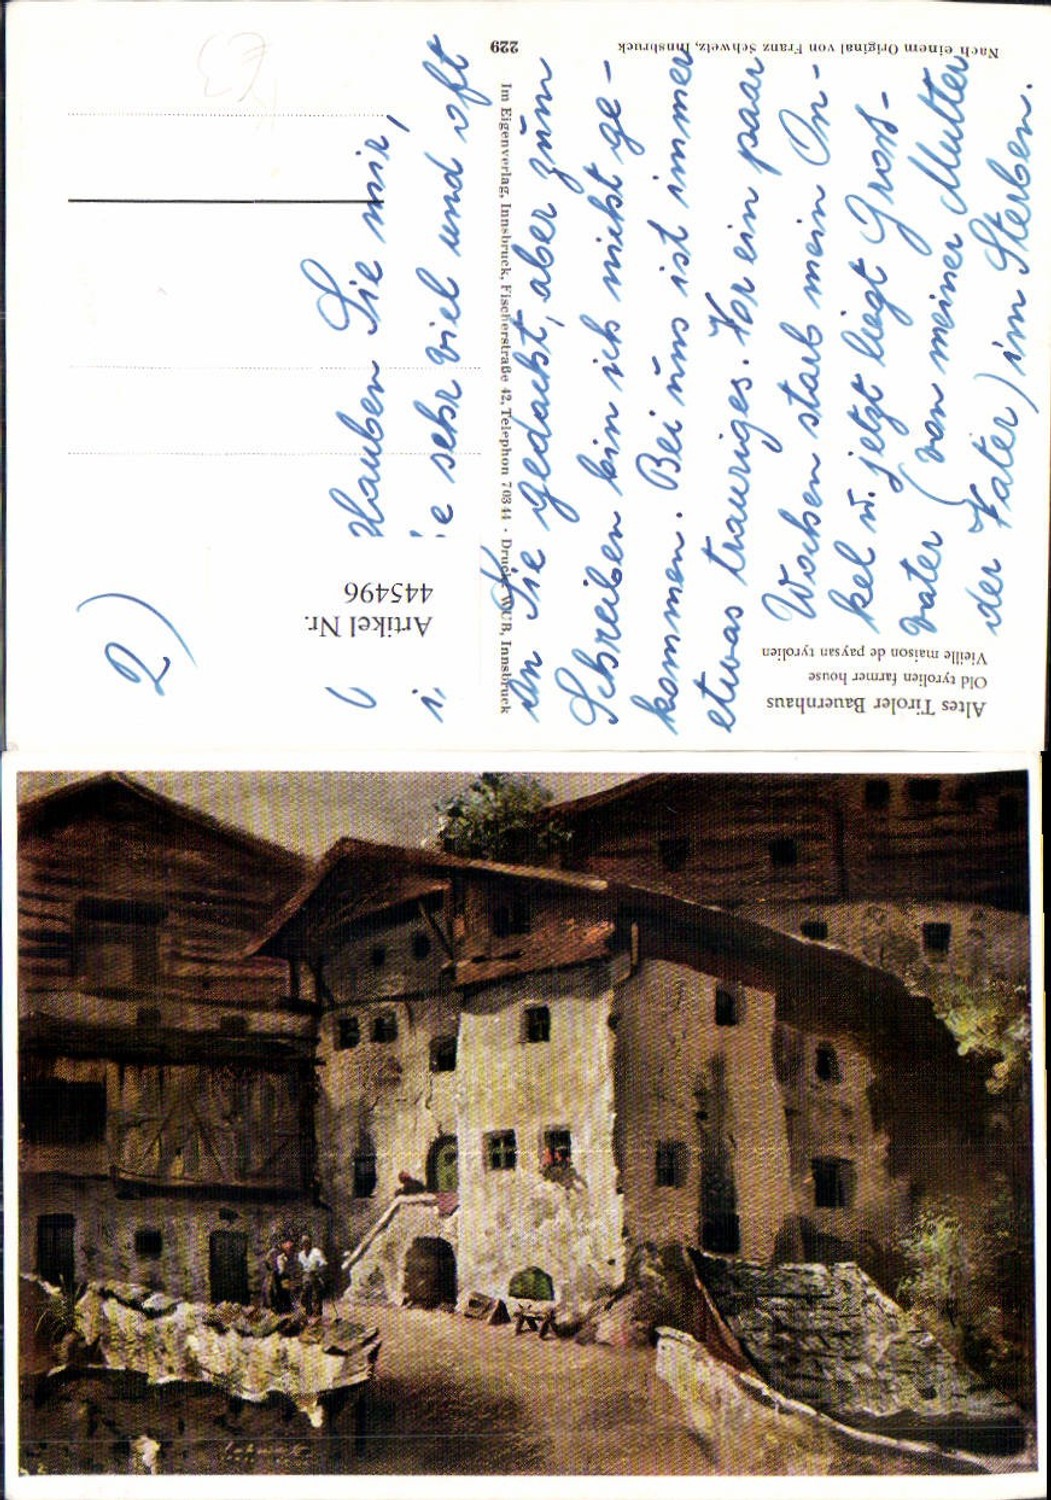 2)
Glauben Sie mir,
sehr viel und oft
an Sie gedacht, aber zum
Schreiben bin ich nicht ge-
kommen. Bei uns ist immer
etwas trauriges. Vor ein paar
Wochen starb mein On-
kel u. jetzt liegt Groß-
vater (von meiner Mutter
der Vater) im Sterben.
Artikel Nr.
445496
Im Eigenverlag, Innsbruck, Fischerstraße 42, Telephon 70344 · Druck: WUB, Innsbruck
229
Nach einem Original von Franz Schwelz, Innsbruck
Altes Tiroler Bauernhaus
Old tyrolien farmer house
Vieille maison de paysan tyrolien